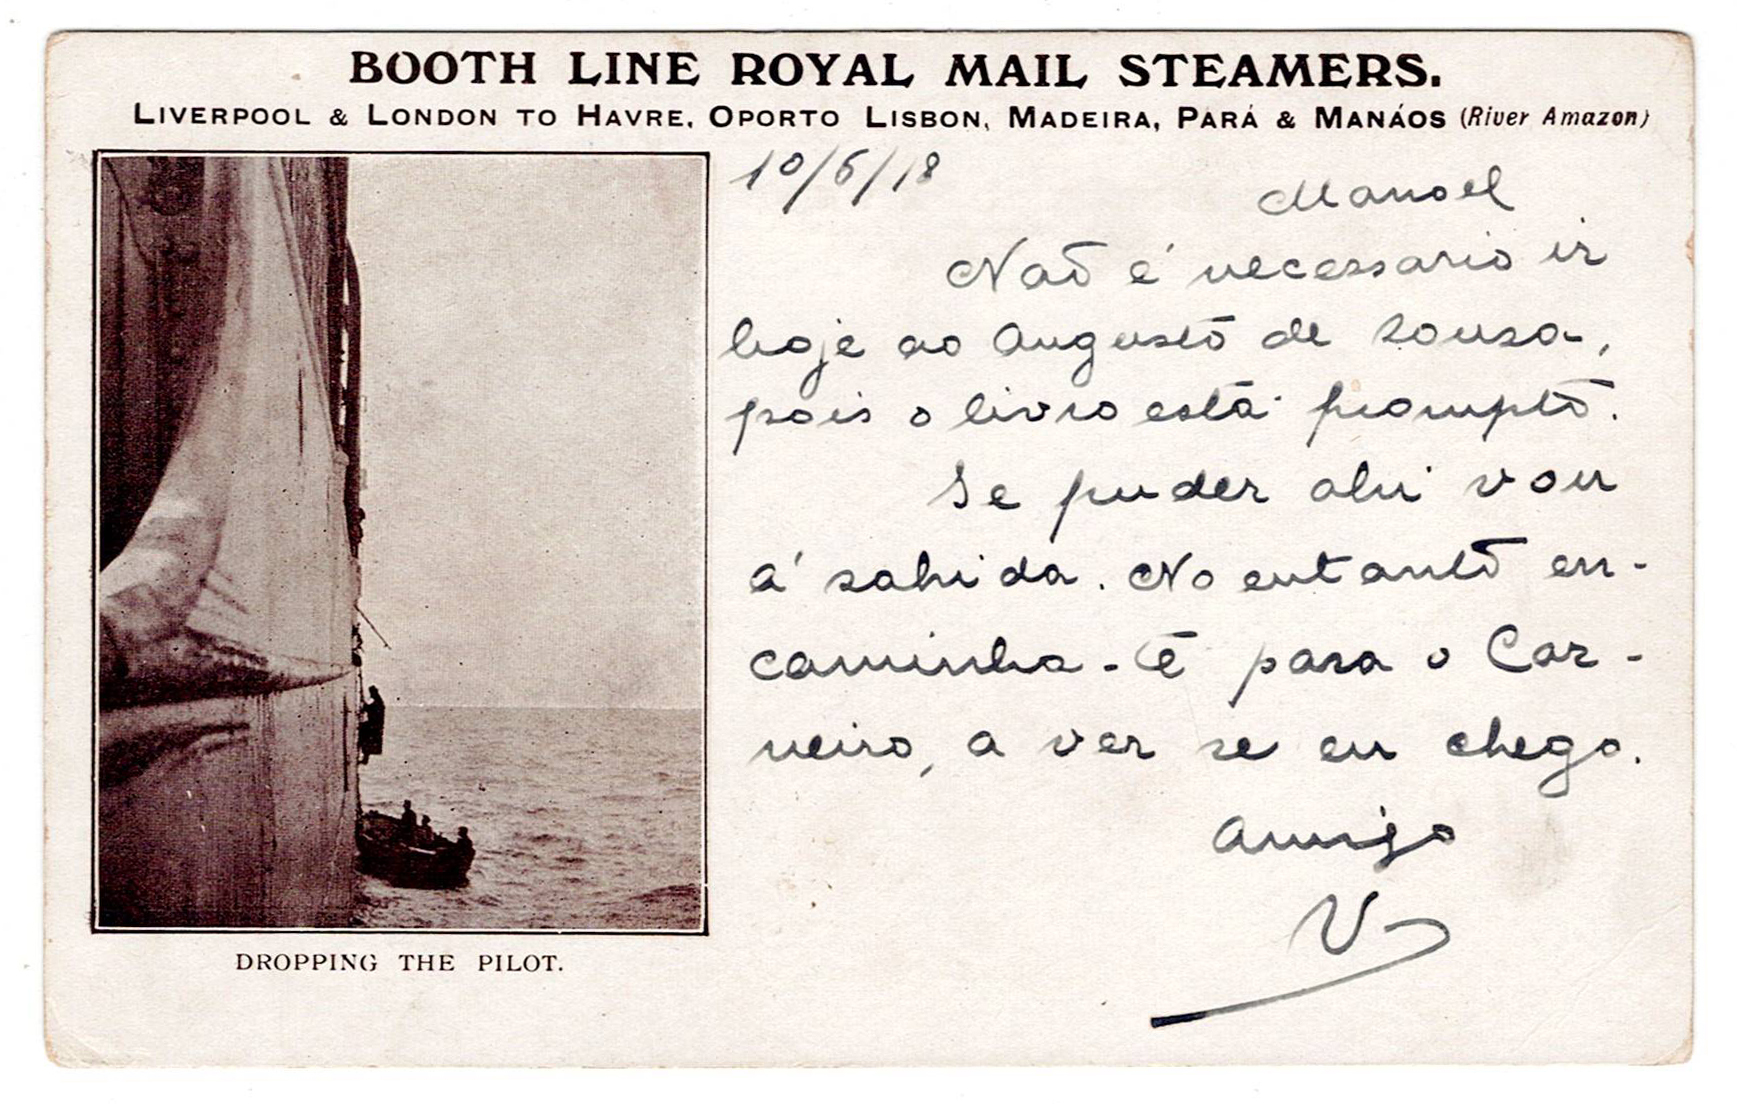 BOOTH LINE ROYAL MAIL STEAMERS.
LIVERPOOL & LONDON TO HAVRE, OPORTO LISBON, MADEIRA, PARÁ & MANÁOS (River Amazon)
10/6/18
Manoel
Não é necessario ir
hoje ao Augusto de Sousa,
pois o livro está prompto.
Se puder ahi vou
á sahida. No entanto en-
caminha-te para o Car-
neiro, a ver se eu chego.
Amigo
V
DROPPING THE PILOT.